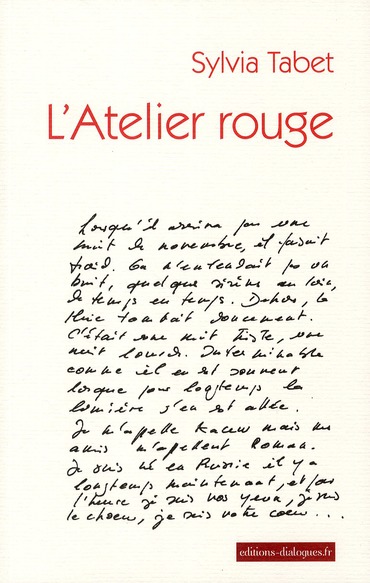 Sylvia Tabet
L'Atelier rouge
Lorsqu'il arriva par une
nuit de novembre, il faisait
froid. On n'entendait pas un
bruit, quelque sirène au loin,
de temps en temps. Dehors, la
pluie tombait doucement.
C'était une nuit triste, une
nuit lourde. Interminable
comme il en est souvent
lorsque pour longtemps la
lumière s'en est allée.
Je m'appelle mais mes
amis m'appellent Roman.
Je suis né en Russie il y a
longtemps maintenant, et pour
l'heure je suis vos yeux, je suis
le choeur, je suis votre coeur...
editions-dialogues.fr